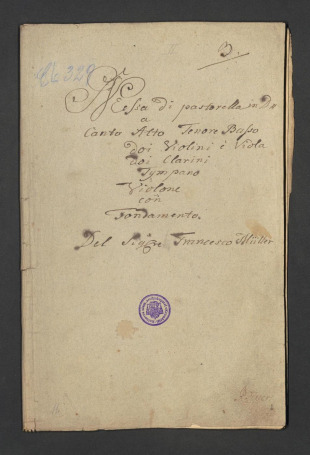 3.
№ 329
Messa di pastorella in D
a
Canto Alto Tenore Basso
doi Violini è Viola
doi Clarini
Tympano
Violone
con
Fondamento.
Del Sigre Francesco Müller